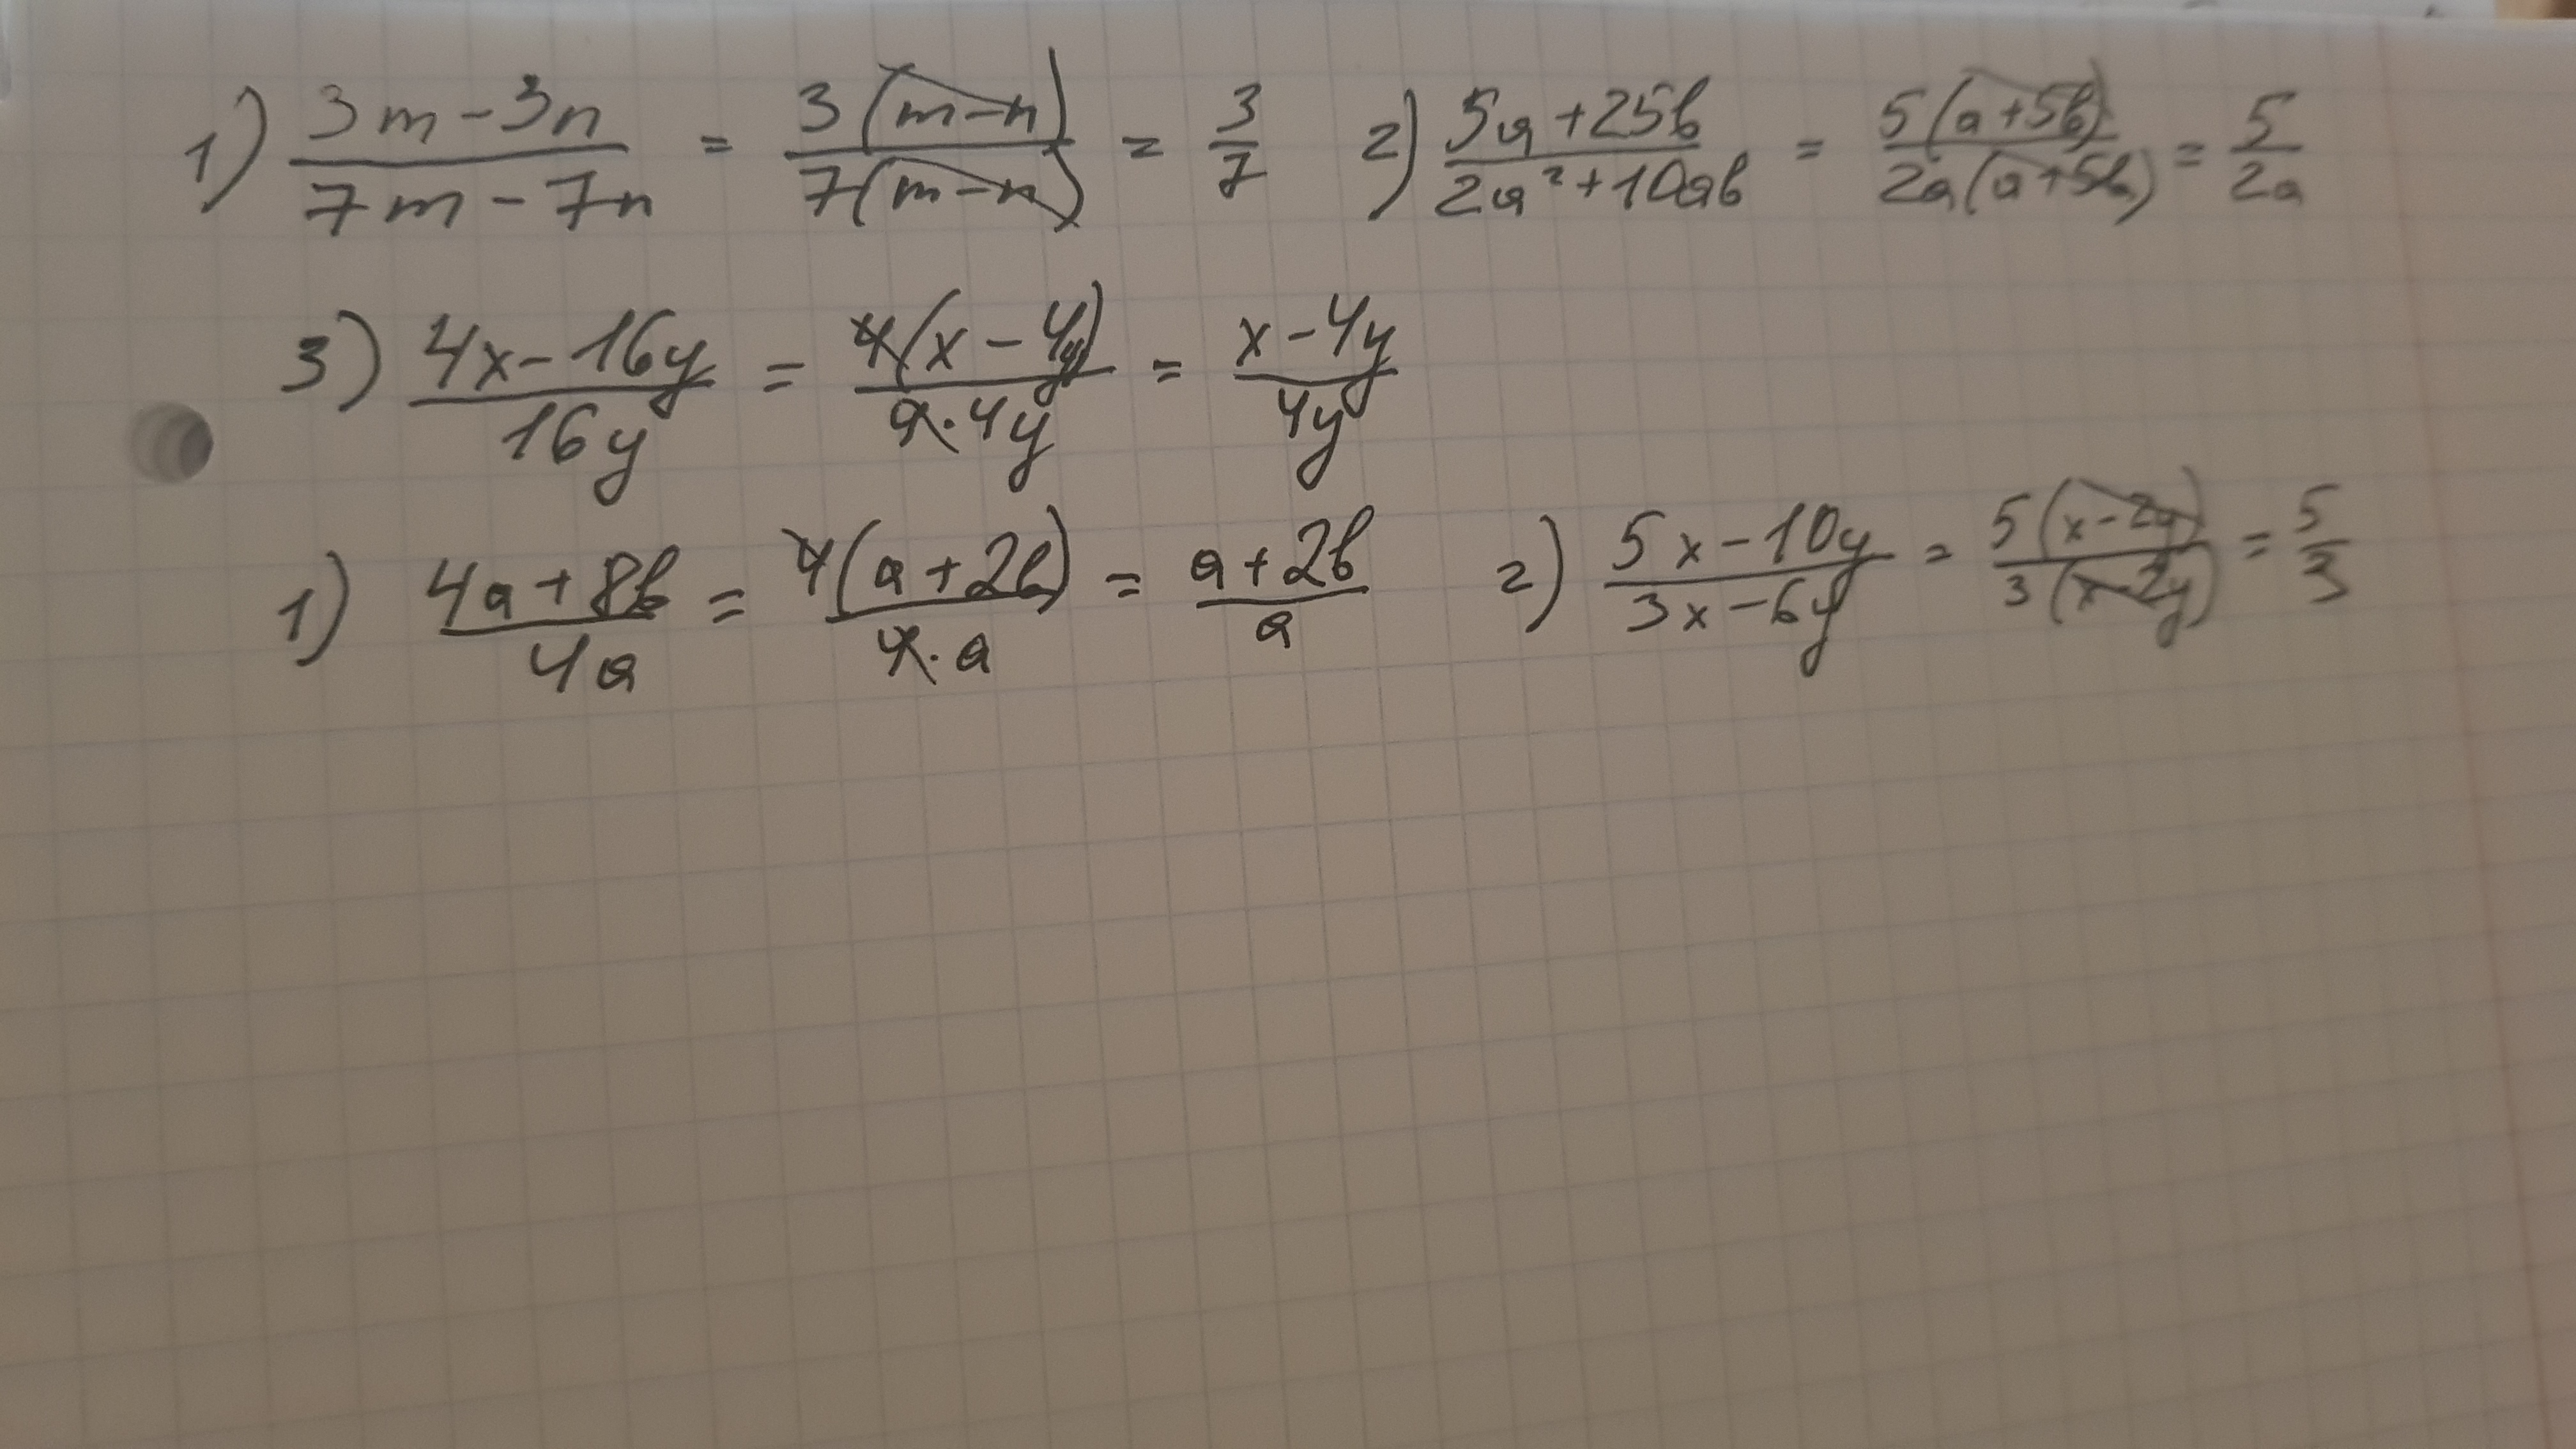 1) (3m-3n)/(7m-7n) = 3(m-n)/7(m-n) = 3/7 2) (5a+25b)/(2a²+10ab) = 5(a+5b)/2a(a+5b) = 5/2a
3) (4x-16y)/16y = 4(x-4y)/4·4y = (x-4y)/4y
1) (4a+8b)/4a = 4(a+2b)/4·a = (a+2b)/a 2) (5x-10y)/(3x-6y) = 5(x-2y)/3(x-2y) = 5/3